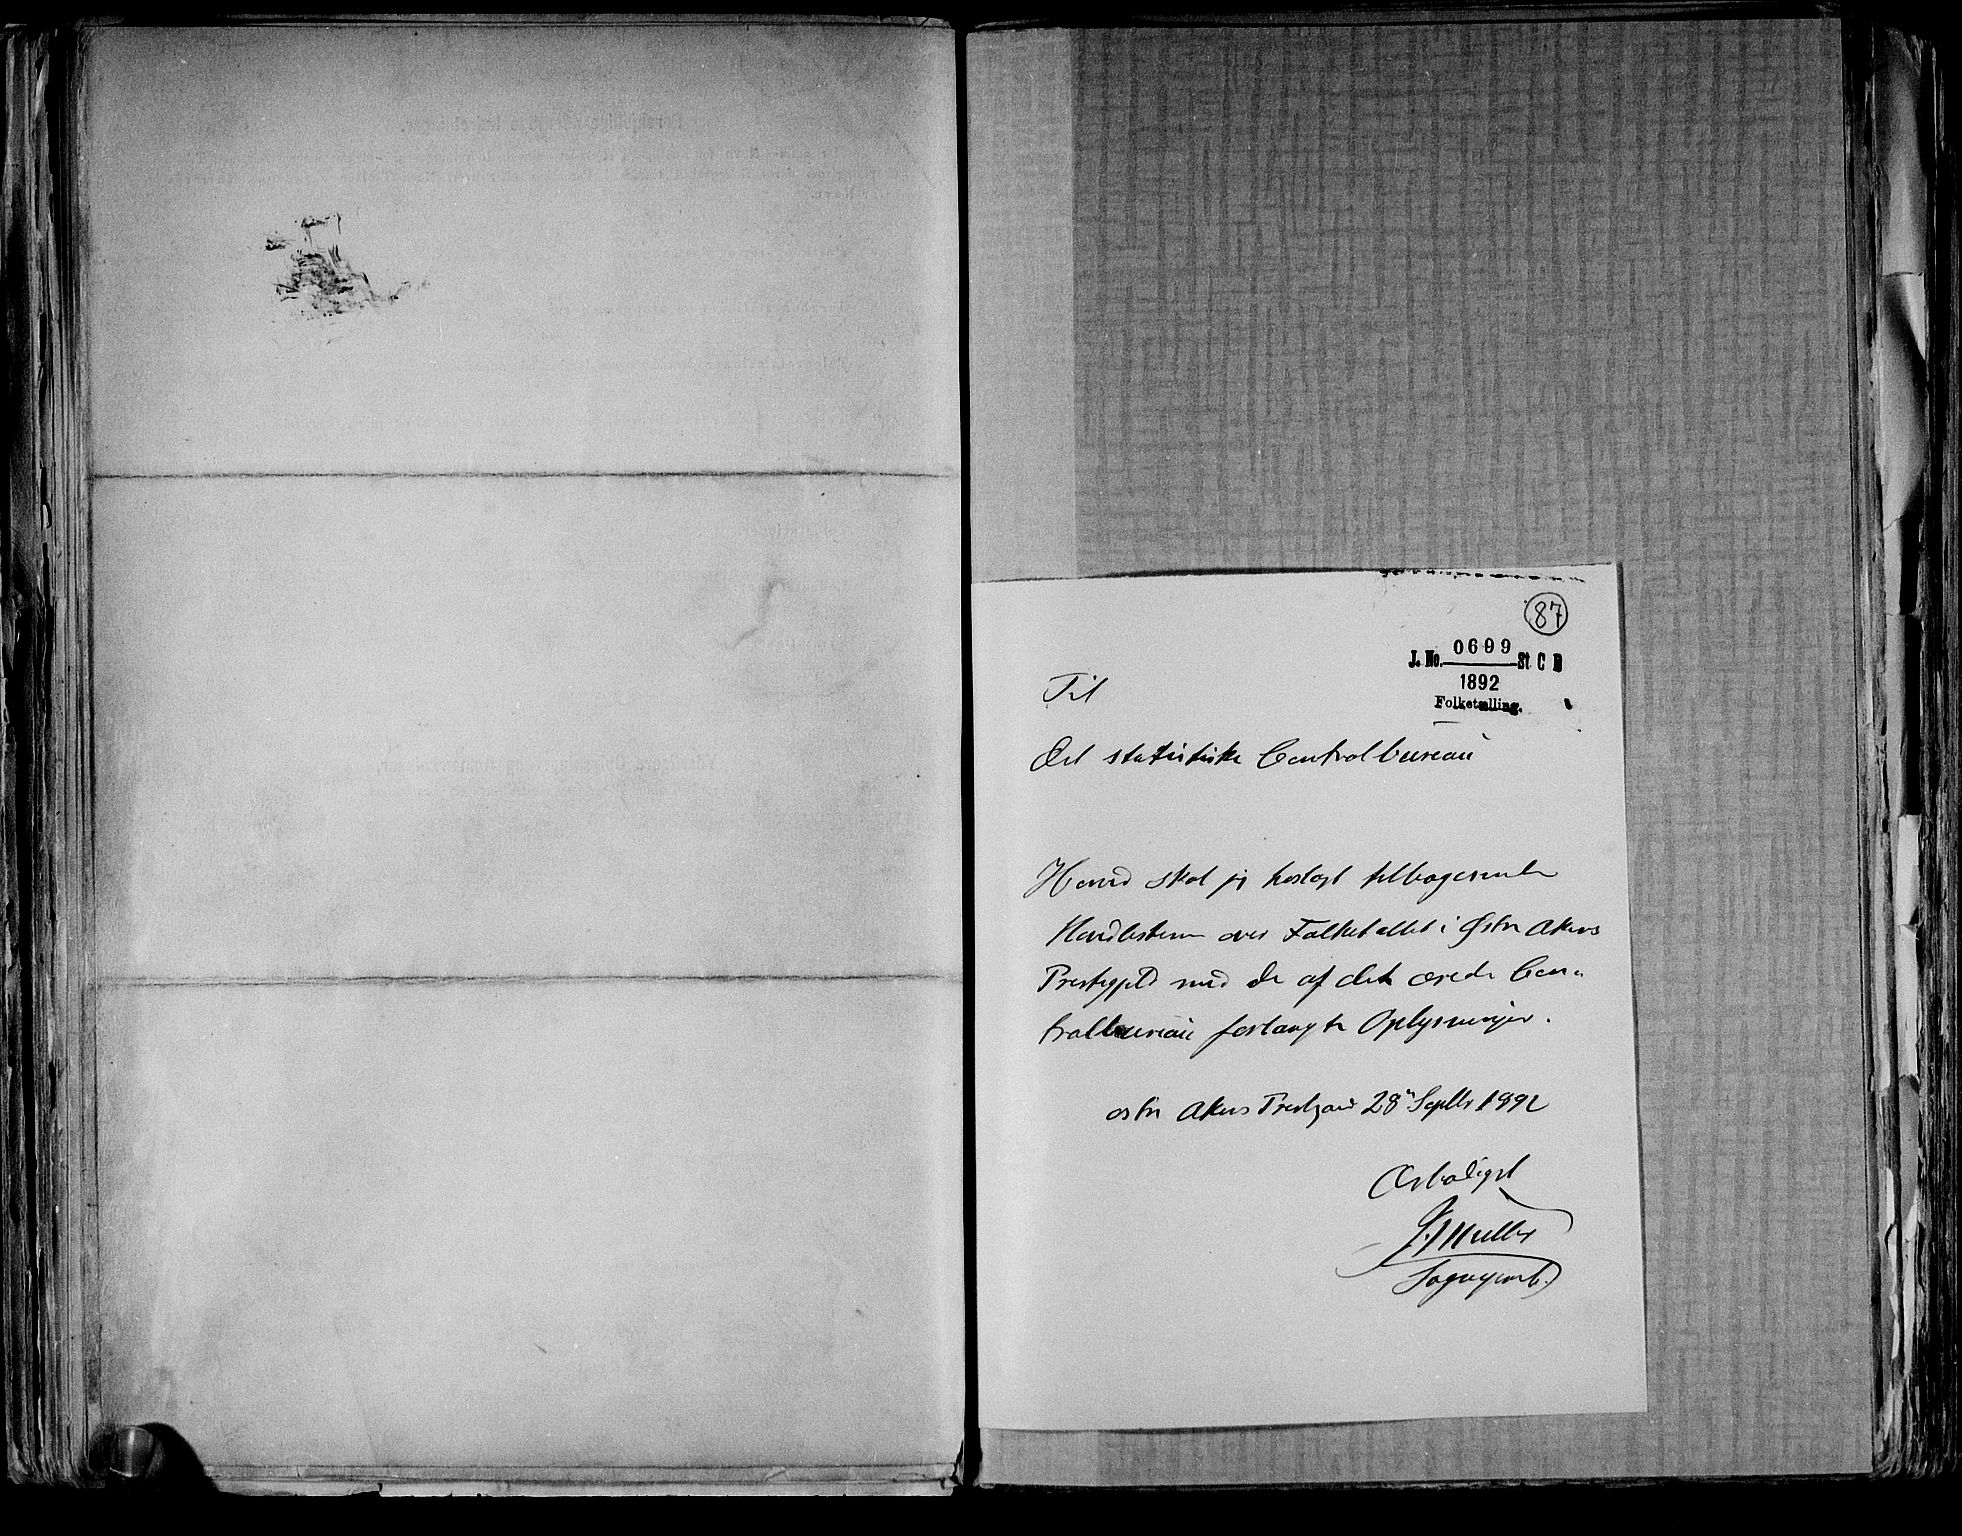 87
J. No. 0699 St C B
1892
Folketælling.
Til
Det statistiske Centralbureau
Herved skal jeg høfligst tilbagesende
Hovedlisterne over Folketallet i Østre Akers
Prestegjeld med de af det ærede Cen-
tralbureau forlangte Oplysninger.
Østre Akers Prestgaard 28 Septbr 1892
Ærbødigst
J. Müller
Sogneprest.